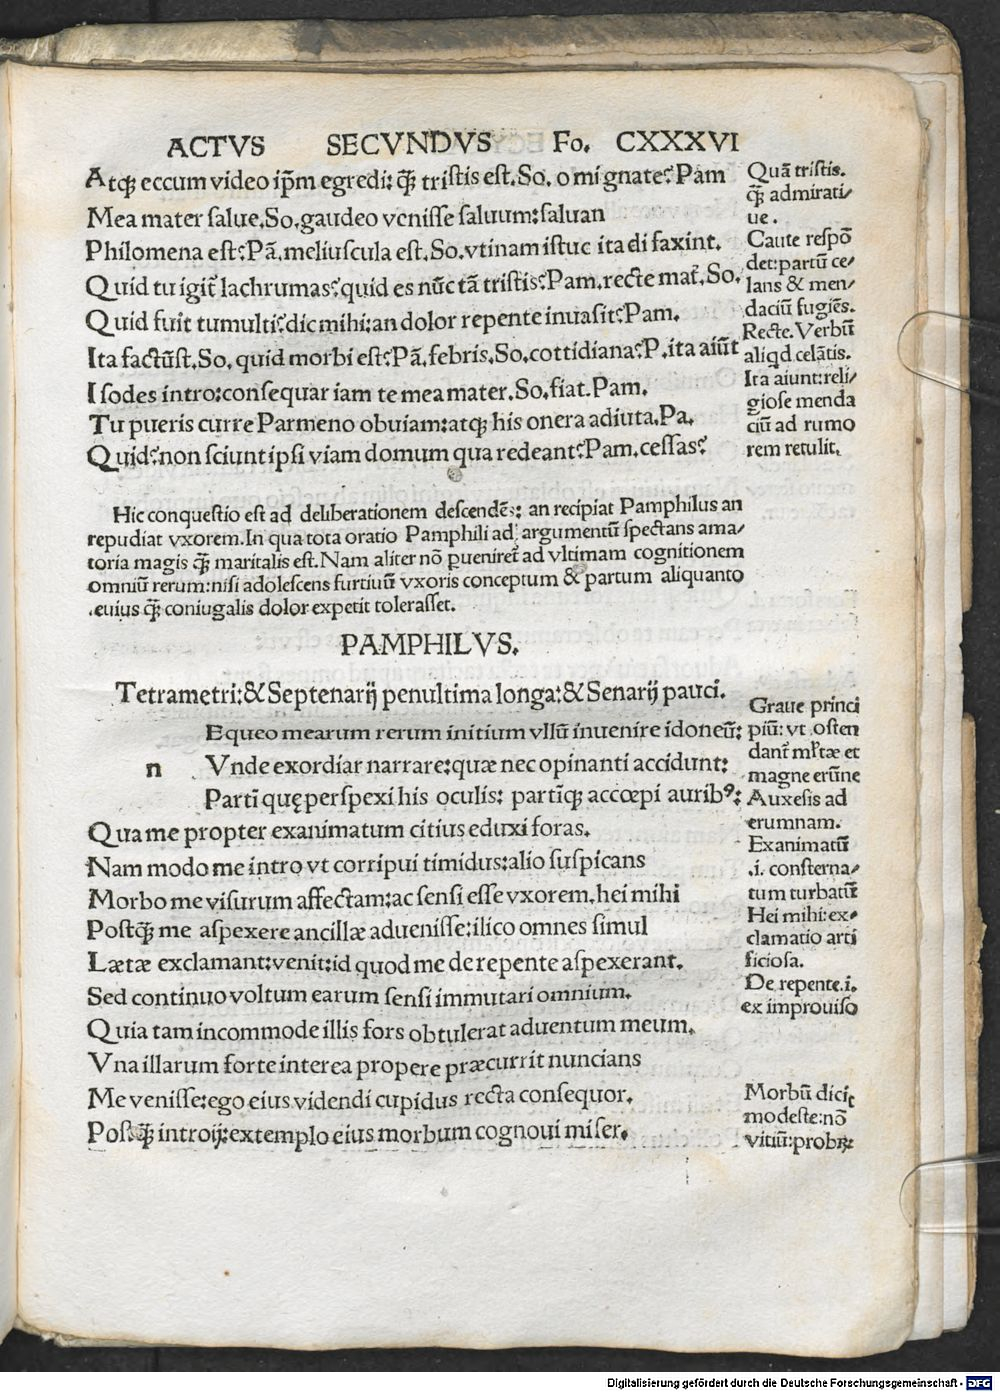 ACTVS SECVNDVS Fo. CXXXVI
Atqꝫ eccum video ip̄m egredi: q̄ꝫ tristis est. So. o mi gnate? Pam
Mea mater salue. So. gaudeo venisse saluum: saluan
Philomena est? Pā. meliuscula est. So. vtinam istuc ita di faxint.
Quid tu igit̄ lachrumas? quid es nūc tā tristis? Pam. recte mat̄. So.
Quid fuit tumulti? dic mihi: an dolor repente inuasit? Pam.
Ita factūst. So. quid morbi est? Pā. febris. So. cottidiana? P. ita aiūt
I sodes intro: consequar iam te mea mater. So. fiat. Pam.
Tu pueris curre Parmeno obuiam: atqꝫ his onera adiuta. Pa.
Quid? non sciunt ipsi viam domum qua redeant? Pam. cessas?
Quā tristis.
q̄ꝫ admirati/
ue.
Caute respō
det: partū ce/
lans & men/
daciū fugiēs.
Recte. Verbū
aliqd celātis.
Ita aiunt: reli/
giose menda
ciū ad rumo
rem retulit.
Hic conquestio est ad deliberationem descendēs: an recipiat Pamphilus an
repudiat vxorem. In qua tota oratio Pamphili ad argumentū spectans ama/
toria magis q̄ꝫ maritalis est. Nam aliter nō ꝑueniret ad vltimam cognitionem
omniū rerum: nisi adolescens furtiuū vxoris conceptum & partum aliquanto
.euius q̄ꝫ coniugalis dolor expetit tolerasset.
PAMPHILVS.
Tetrametri: & Septenarij penultima longa: & Senarij pauci.
n Equeo mearum rerum initium vllū inuenire idoneū:
Vnde exordiar narrare: quæ nec opinanti accidunt:
Partī quę perspexi his oculis: partīqꝫ accœpi auribꝰ:
Qua me propter exanimatum citius eduxi foras.
Nam modo me intro vt corripui timidus: alio suspicans
Morbo me visurum affectam: ac sensi esse vxorem. hei mihi
Postq̄ꝫ me aspexere ancillæ aduenisse: ilico omnes simul
Lætæ exclamant: venit: id quod me derepente aspexerant.
Sed continuo voltum earum sensi immutari omnium.
Quia tam incommode illis fors obtulerat aduentum meum.
Vna illarum forte interea propere præcurrit nuncians
Me venisse: ego eius videndi cupidus recta consequor.
Postq̄ꝫ introij: extemplo eius morbum cognoui miser.
Graue princi
piū: vt osten
dant̄ mltæ et
magne erūne
Auxesis ad
erumnam.
Exanimatū
.i. consterna/
tum turbatū
Hei mihi: ex/
clamatio arti
ficiosa.
De repente .i.
ex improuiso
Morbū dicit
modeste: nō
vitiū: probꝝ
Digitalisierung gefördert durch die Deutsche Forschungsgemeinschaft - DFG